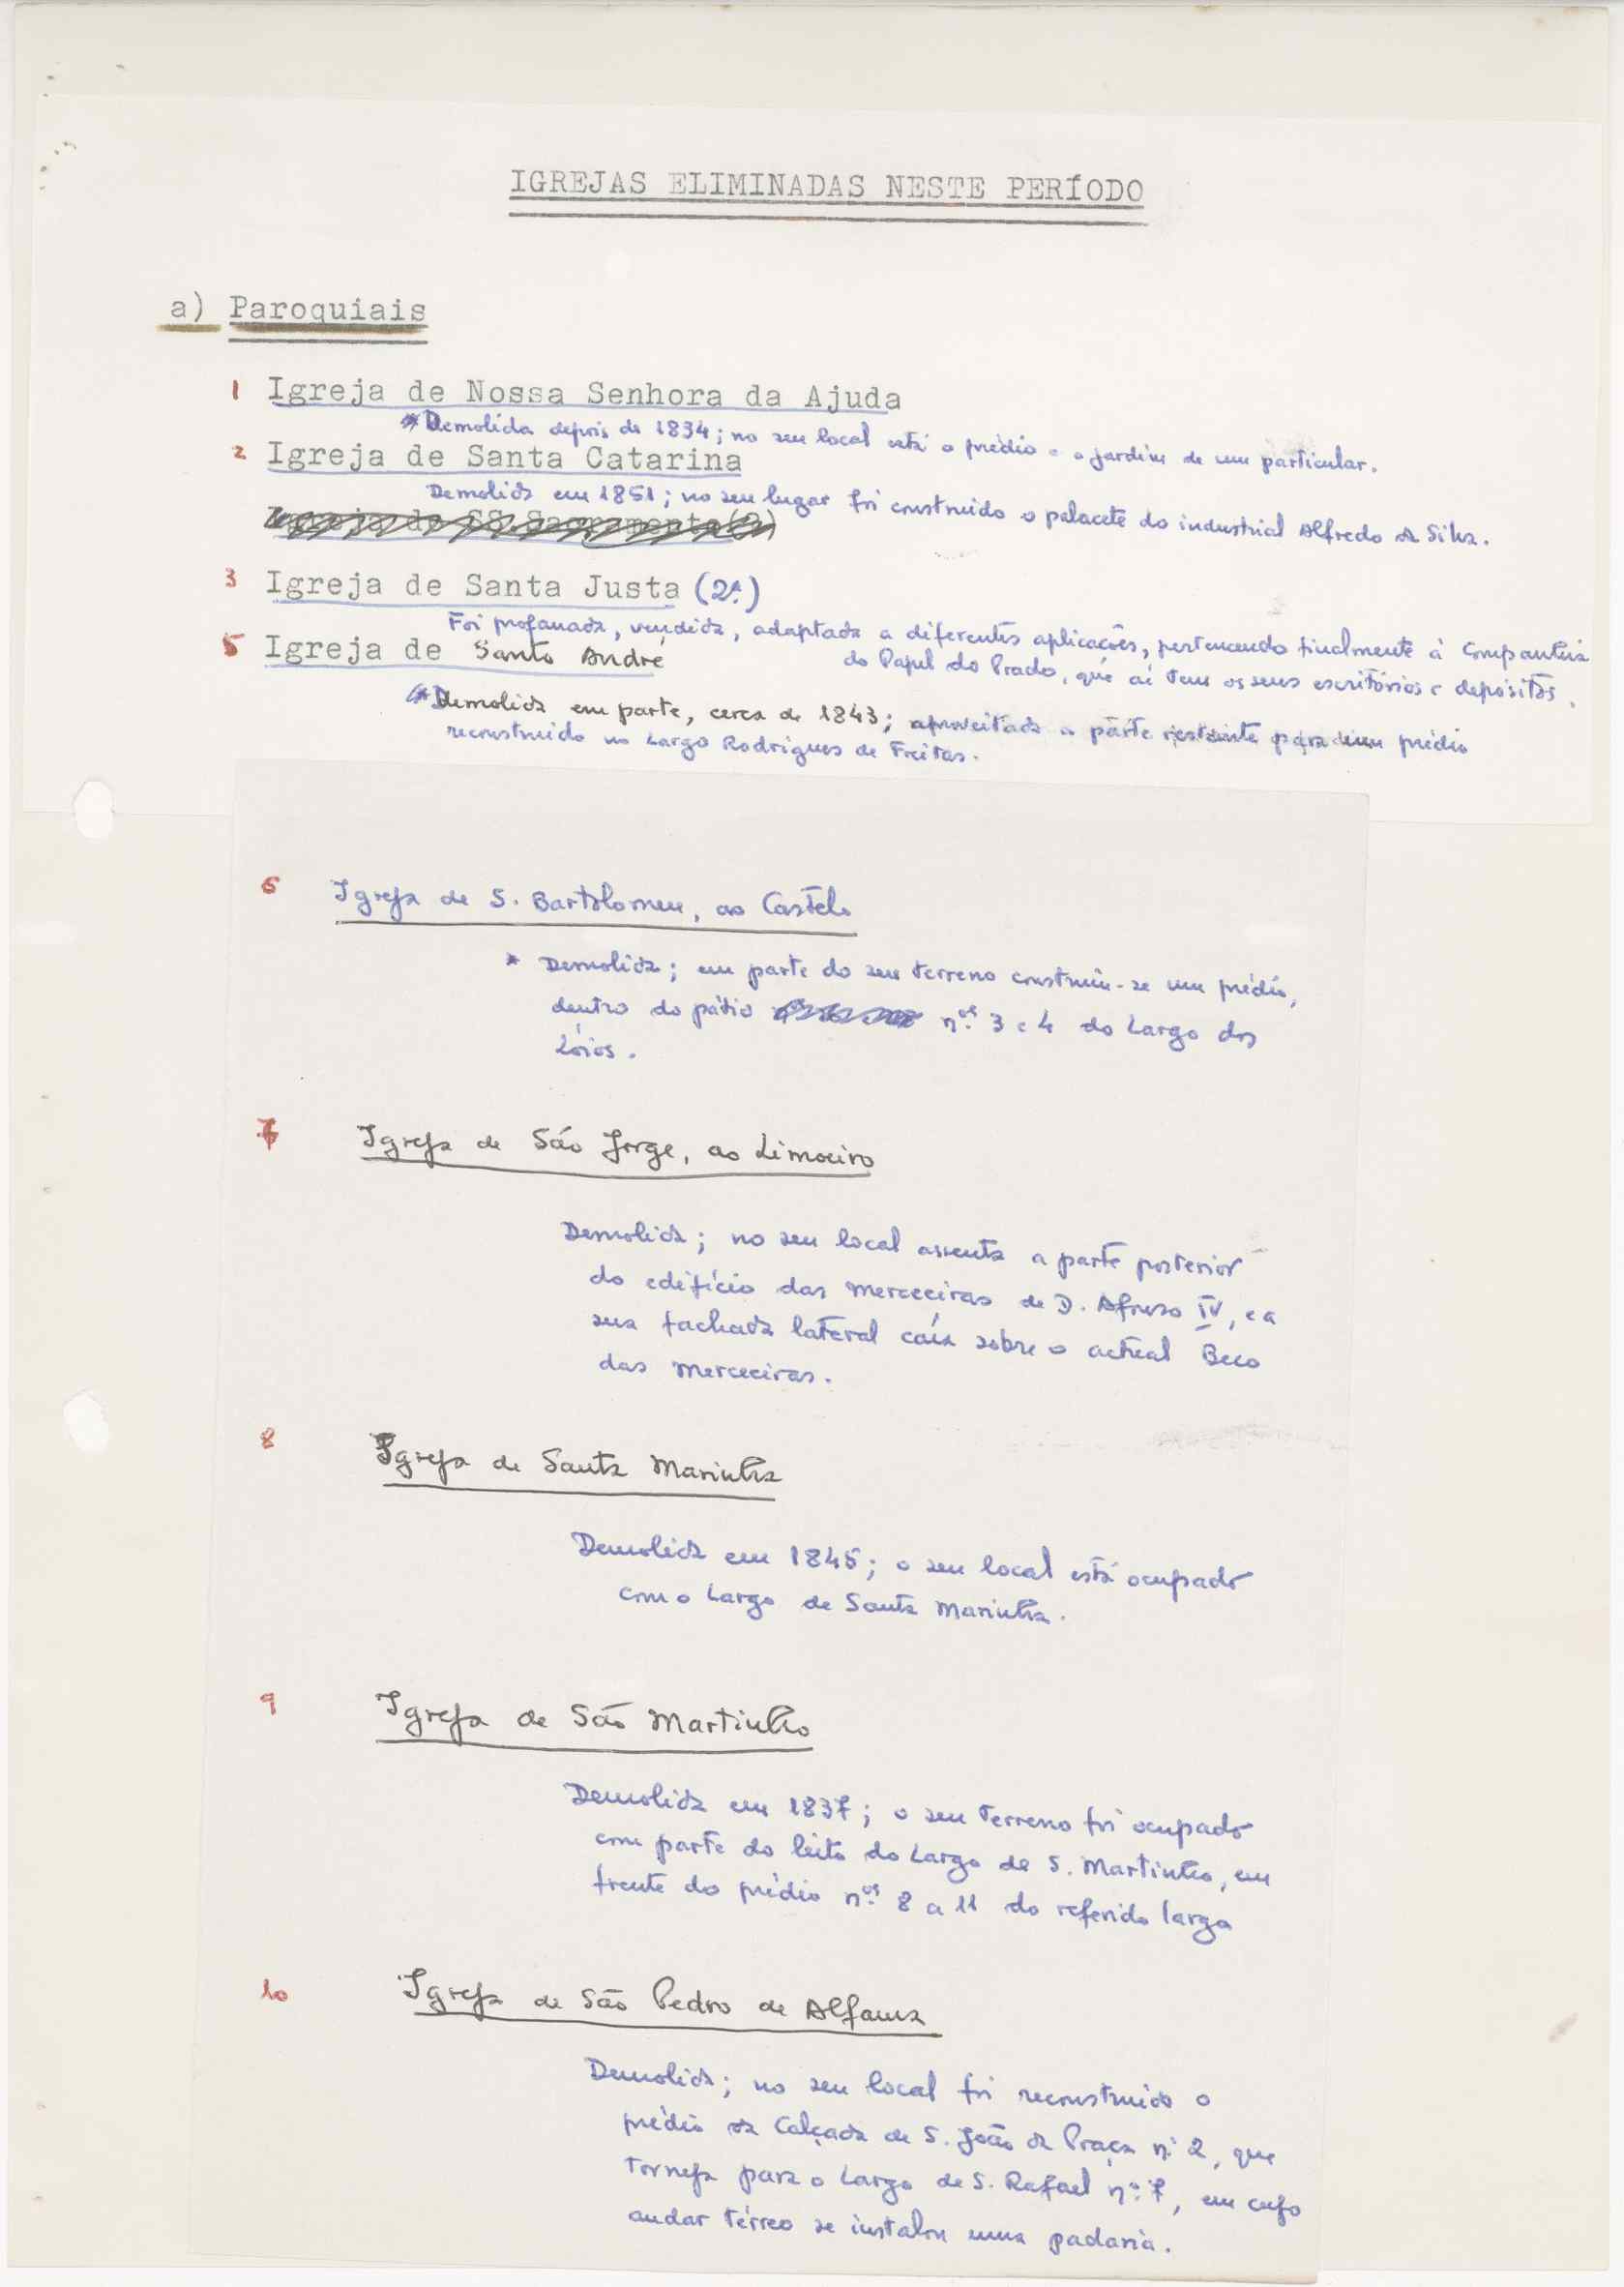 IGREJAS ELIMINADAS NESTE PERÍODO
a) Paroquiais
1 Igreja de Nossa Senhora da Ajuda
* Demolida depois de 1834; no seu local está o prédio e o jardim de um particular.
2 Igreja de Santa Catarina
Demolida em 1851; no seu lugar foi construido o palacete do industrial Alfredo da Silva.
Igreja do SS. Sacramento (2)
3 Igreja de Santa Justa (2ª.)
Foi profanada, vendida, adaptada a diferentes aplicações, pertencendo finalmente à Companhia
do Papel do Prado, que aí tem os seus escritórios e depósitos.
5 Igreja de Santo André
* Demolida em parte, cerca de 1843; aproveitada a parte restante para um prédio
reconstruido no Largo Rodrigues de Freitas.
6 Igreja de S. Bartolomeu, ao Castelo
* Demolida; em parte do seu terreno construiu-se um prédio,
dentro do pátio nos. 3 e 4 do Largo dos
Lóios.
7 Igreja de São Jorge, ao Limoeiro
Demolida; no seu local assenta a parte posterior
do edifício das Merceeiras de D. Afonso IV, e a
sua fachada lateral caía sobre o actual Beco
das Merceeiras.
8 Igreja de Santa Marinha
Demolida em 1845; o seu local está ocupado
com o Largo de Santa Marinha.
9 Igreja de São Martinho
Demolida em 1837; o seu terreno foi ocupado
com parte do leito do Largo de S. Martinho, em
frente do prédio nos. 8 a 11 do referido largo
10 Igreja de São Pedro de Alfama
Demolida; no seu local foi reconstruido o
prédio da Calçada de S. João da Praça nº. 2, que
torneja para o Largo de S. Rafael nº. 7, em cujo
andar térreo se instalou uma padaria.